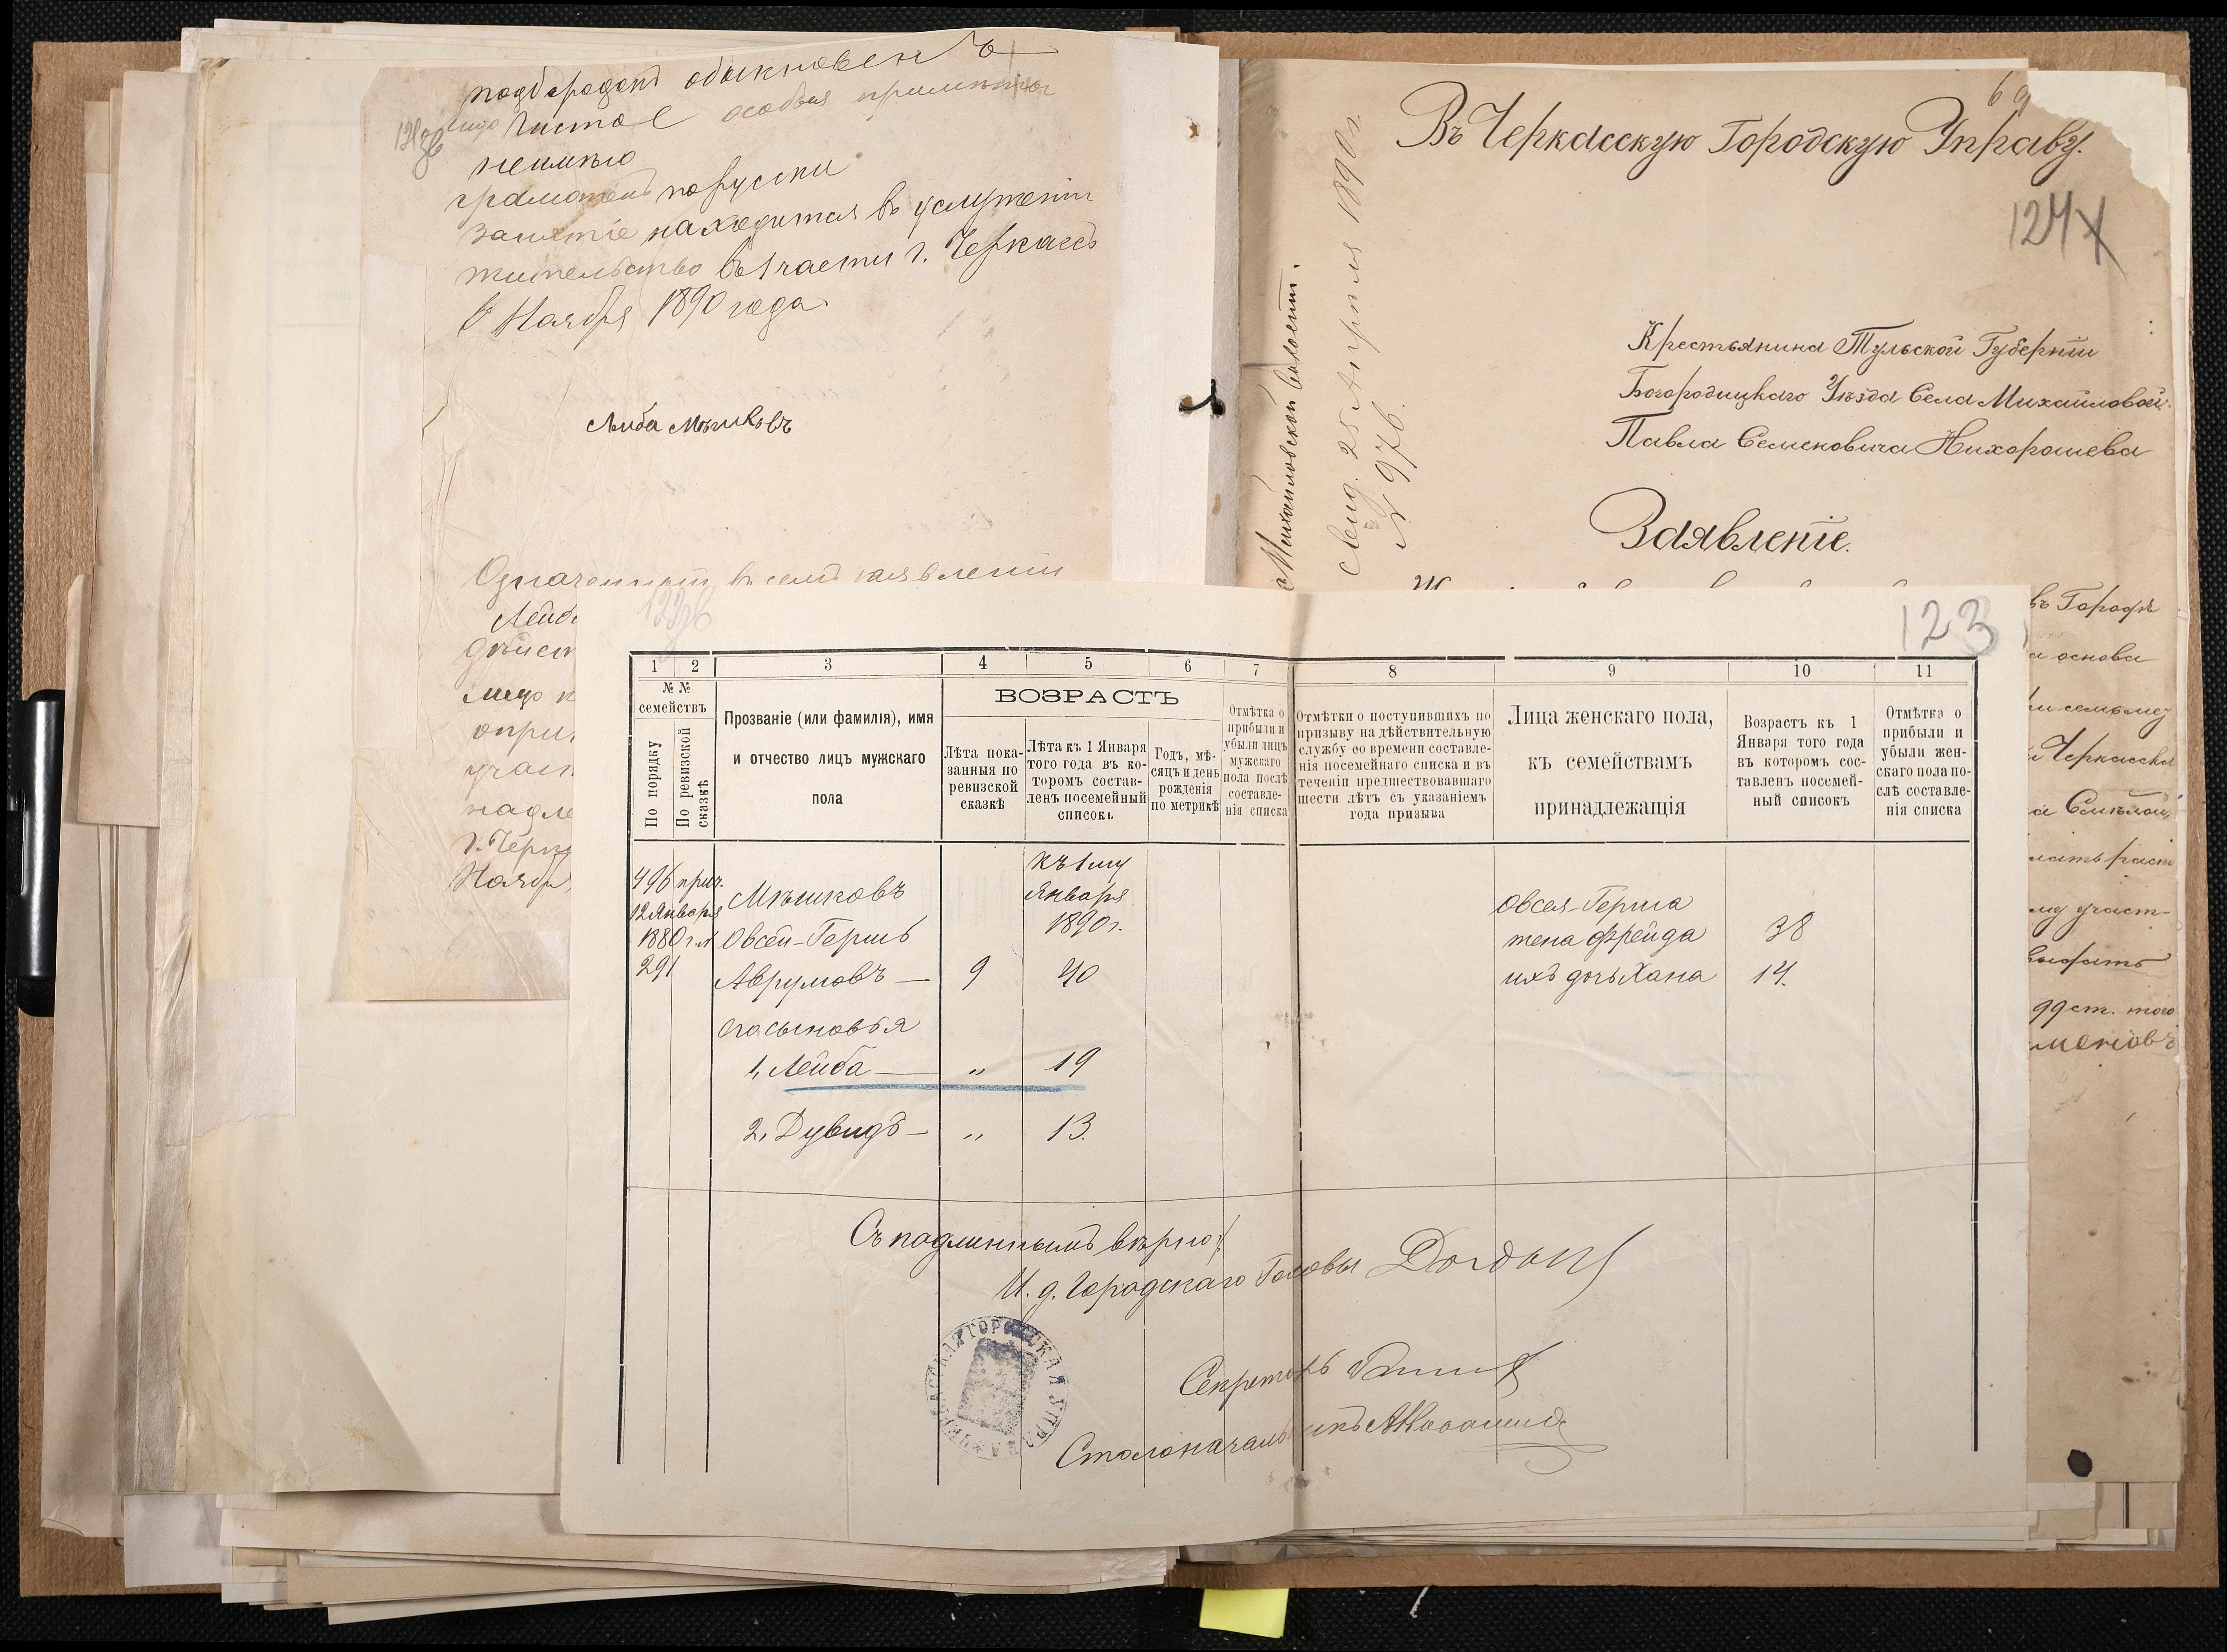 подбородокъ обыкновенъ
лицо чистое особыя примѣты
неимѣю
грамотенъ порусски
занятіе находится въ услуженіи
жительство въ 1 части г. Черкассъ
6 Ноября 1890 года
Лейба Мѣшковъ
Означенный въ семъ заявленіи
Лейб
дѣйст
лицо к
г. Черк
Нояб
Въ Черкасскую Городскую Управу.
124
Крестьянина Тульской Губерніи
Богородицкаго Уѣзда Села Михайловой
Павла Семеновича Нихорошева
Заявленіе.
Михайловской волости.
Свид. 25 Апрѣля 1890 г.
№ 976.
въ Городѣ
а основа
Черкасск
а Смѣлой,
му участ-
99 ст. того
меновъ
123
1 2 3 4 5 6 7 8 9 10 11
№ №
семействъ
По порядку
По ревизской сказкѣ
Прозваніе (или фамилія), имя
и отчество лицъ мужскаго
пола
ВОЗРАСТЪ
Лѣта пока-
занныя по
ревизской
сказкѣ
Лѣта къ 1 Января
того года въ ко-
торомъ состав-
ленъ посемейный
списокъ
Годъ, мѣ-
сяцъ и день
рожденія
по метрикѣ
Отмѣтка о
прибыли и
убыли лицъ
мужскаго
пола послѣ
составле-
нія списка
Отмѣтки о поступившихъ по
призыву на дѣйствительную
службу со времени составле-
нія посемейнаго списка и въ
теченіи предшествовавшаго
шести лѣтъ съ указаніемъ
года призыва
Лица женскаго пола,
къ семействамъ
принадлежащія
Возрастъ къ 1
Января того года
въ которомъ сос-
тавленъ посемей-
ный списокъ
Отмѣтка о
прибыли и
убыли жен-
скаго пола по-
слѣ составле-
нія списка
496 прич.
12 Января
1880 г. №
291
къ 1му
Января
1890 г.
Мѣшковъ
Овсей-Гершъ
Аврумовъ — 9 40
его сыновья
1, Лейба — „ 19
2, Дувидъ — „ 13.
Овсея-Герша
жена Фрейда 38
ихъ дочь Хана 14.
Съ подлиннымъ вѣрно:
И. д. Городскаго Головы
Секретарь
Столоначальникъ
ЧЕРКАССКАЯ ГОРОДСКАЯ УПРАВА